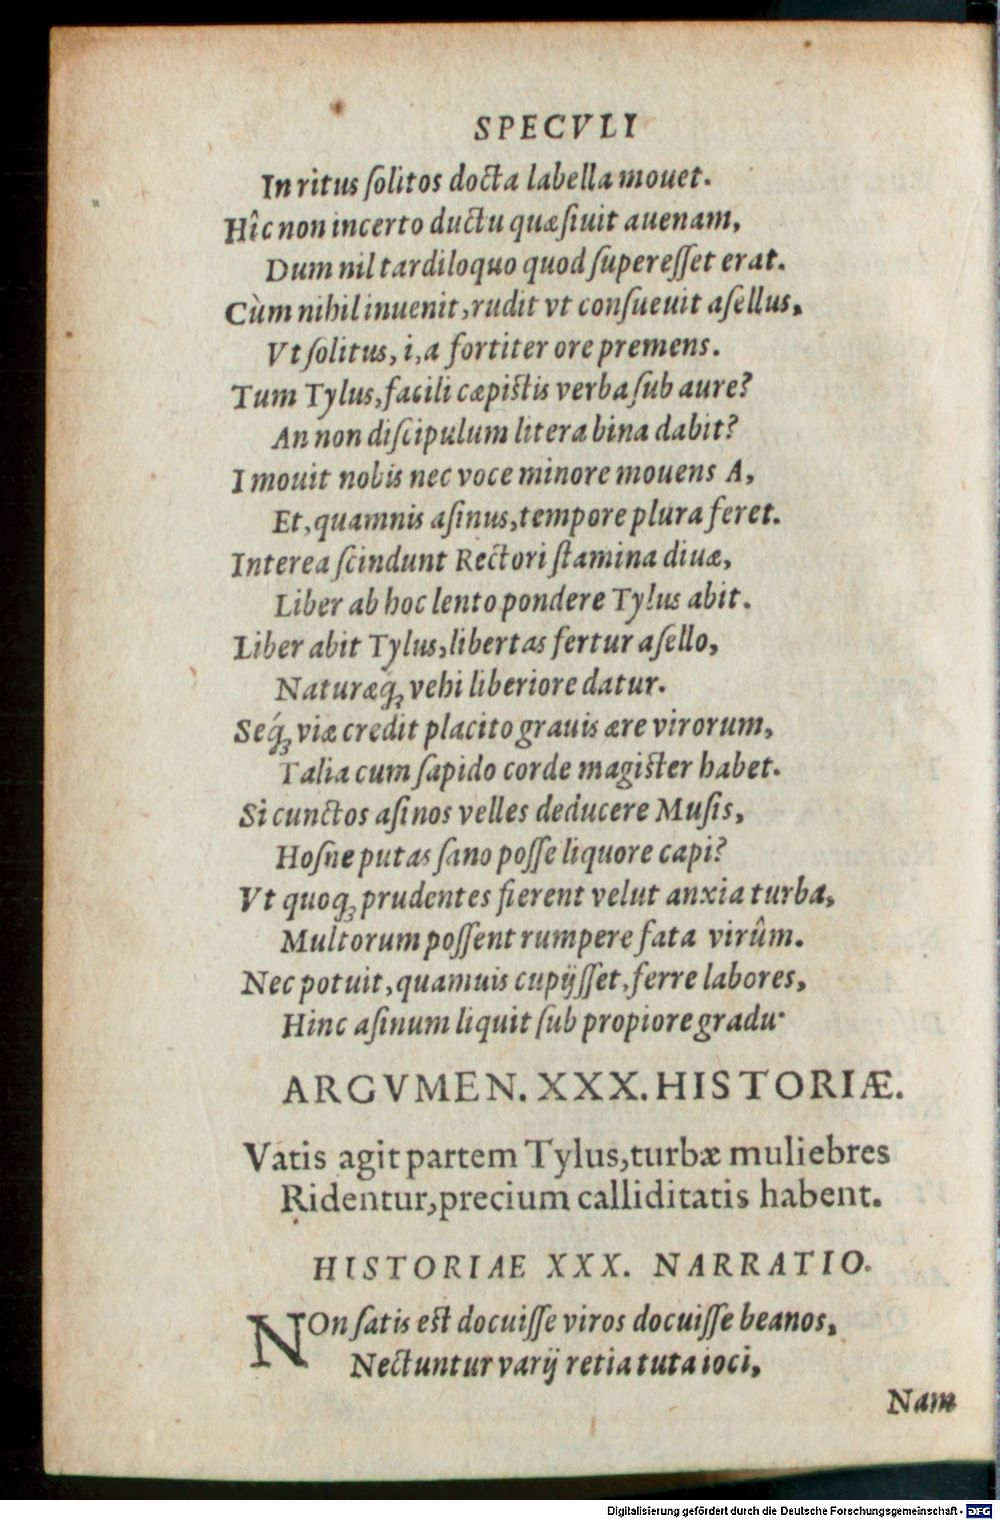 SPECVLI
In ritus ſolitos docta labella mouet.
Hîc non incerto ductu quæſiuit auenam,
Dum nil tardiloquo quod ſupereſſet erat.
Cùm nihil inuenit, rudit vt conſueuit aſellus,
Vt ſolitus, i, a fortiter ore premens.
Tum Tylus, facili cæpiſtis verba ſub aure?
An non diſcipulum litera bina dabit?
I mouit nobis nec voce minore mouens A,
Et, quamnis aſinus, tempore plura feret.
Interea ſcindunt Rectori ſtamina diuæ,
Liber ab hoc lento pondere Tylus abit.
Liber abit Tylus, libertas fertur aſello,
Naturæq́ꝫ vehi liberiore datur.
Seq́ꝫ viæ credit placito grauis ære virorum,
Talia cum ſapido corde magiſter habet.
Si cunctos aſinos velles deducere Muſis,
Hoſne putas ſano poſſe liquore capi?
Vt quoqꝫ prudentes fierent velut anxia turba,
Multorum poſſent rumpere fata virûm.
Nec potuit, quamuis cupijſſet, ferre labores,
Hinc aſinum liquit ſub propiore gradu.
ARGVMEN. XXX. HISTORIÆ.
Vatis agit partem Tylus, turbæ muliebres
Ridentur, precium calliditatis habent.
HISTORIAE XXX. NARRATIO.
NOn ſatis eſt docuiſſe viros docuiſſe beanos,
Nectuntur varij retia tuta ioci,
Nam
Digitalisierung gefördert durch die Deutsche Forschungsgemeinschaft - DFG